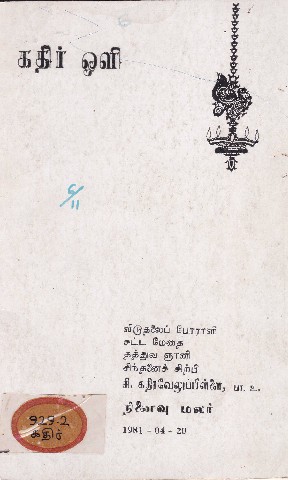 கதிர் ஒளி
6/11
விடுதலைப் போராளி
சட்ட மேதை
தத்துவ ஞானி
சிந்தனைச் சிற்பி
சி. கதிரவேலுப்பிள்ளை, பா. உ.
நினைவு மலர்
1981 - 04 - 20
929.2
கதிர்